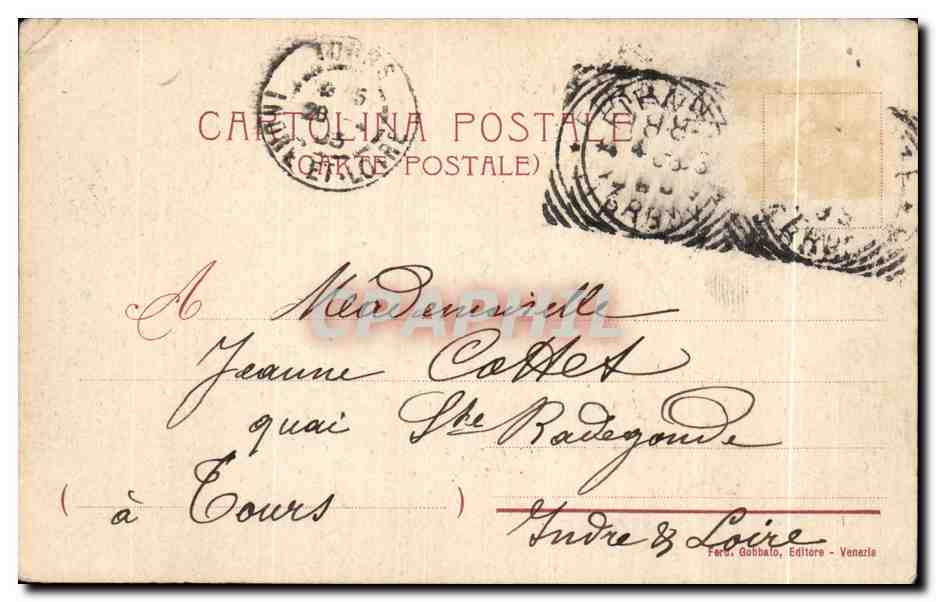 TOURS
28
03
INDRE-ET-LOIRE
CARTOLINA POSTALE
(CARTE POSTALE)
A Mademoiselle
CPAPHIL
Jeanne Cottet
quai Ste Radegonde
( à Tours )
Indre & Loire
Ferd. Gobbato, Editore - Venezia